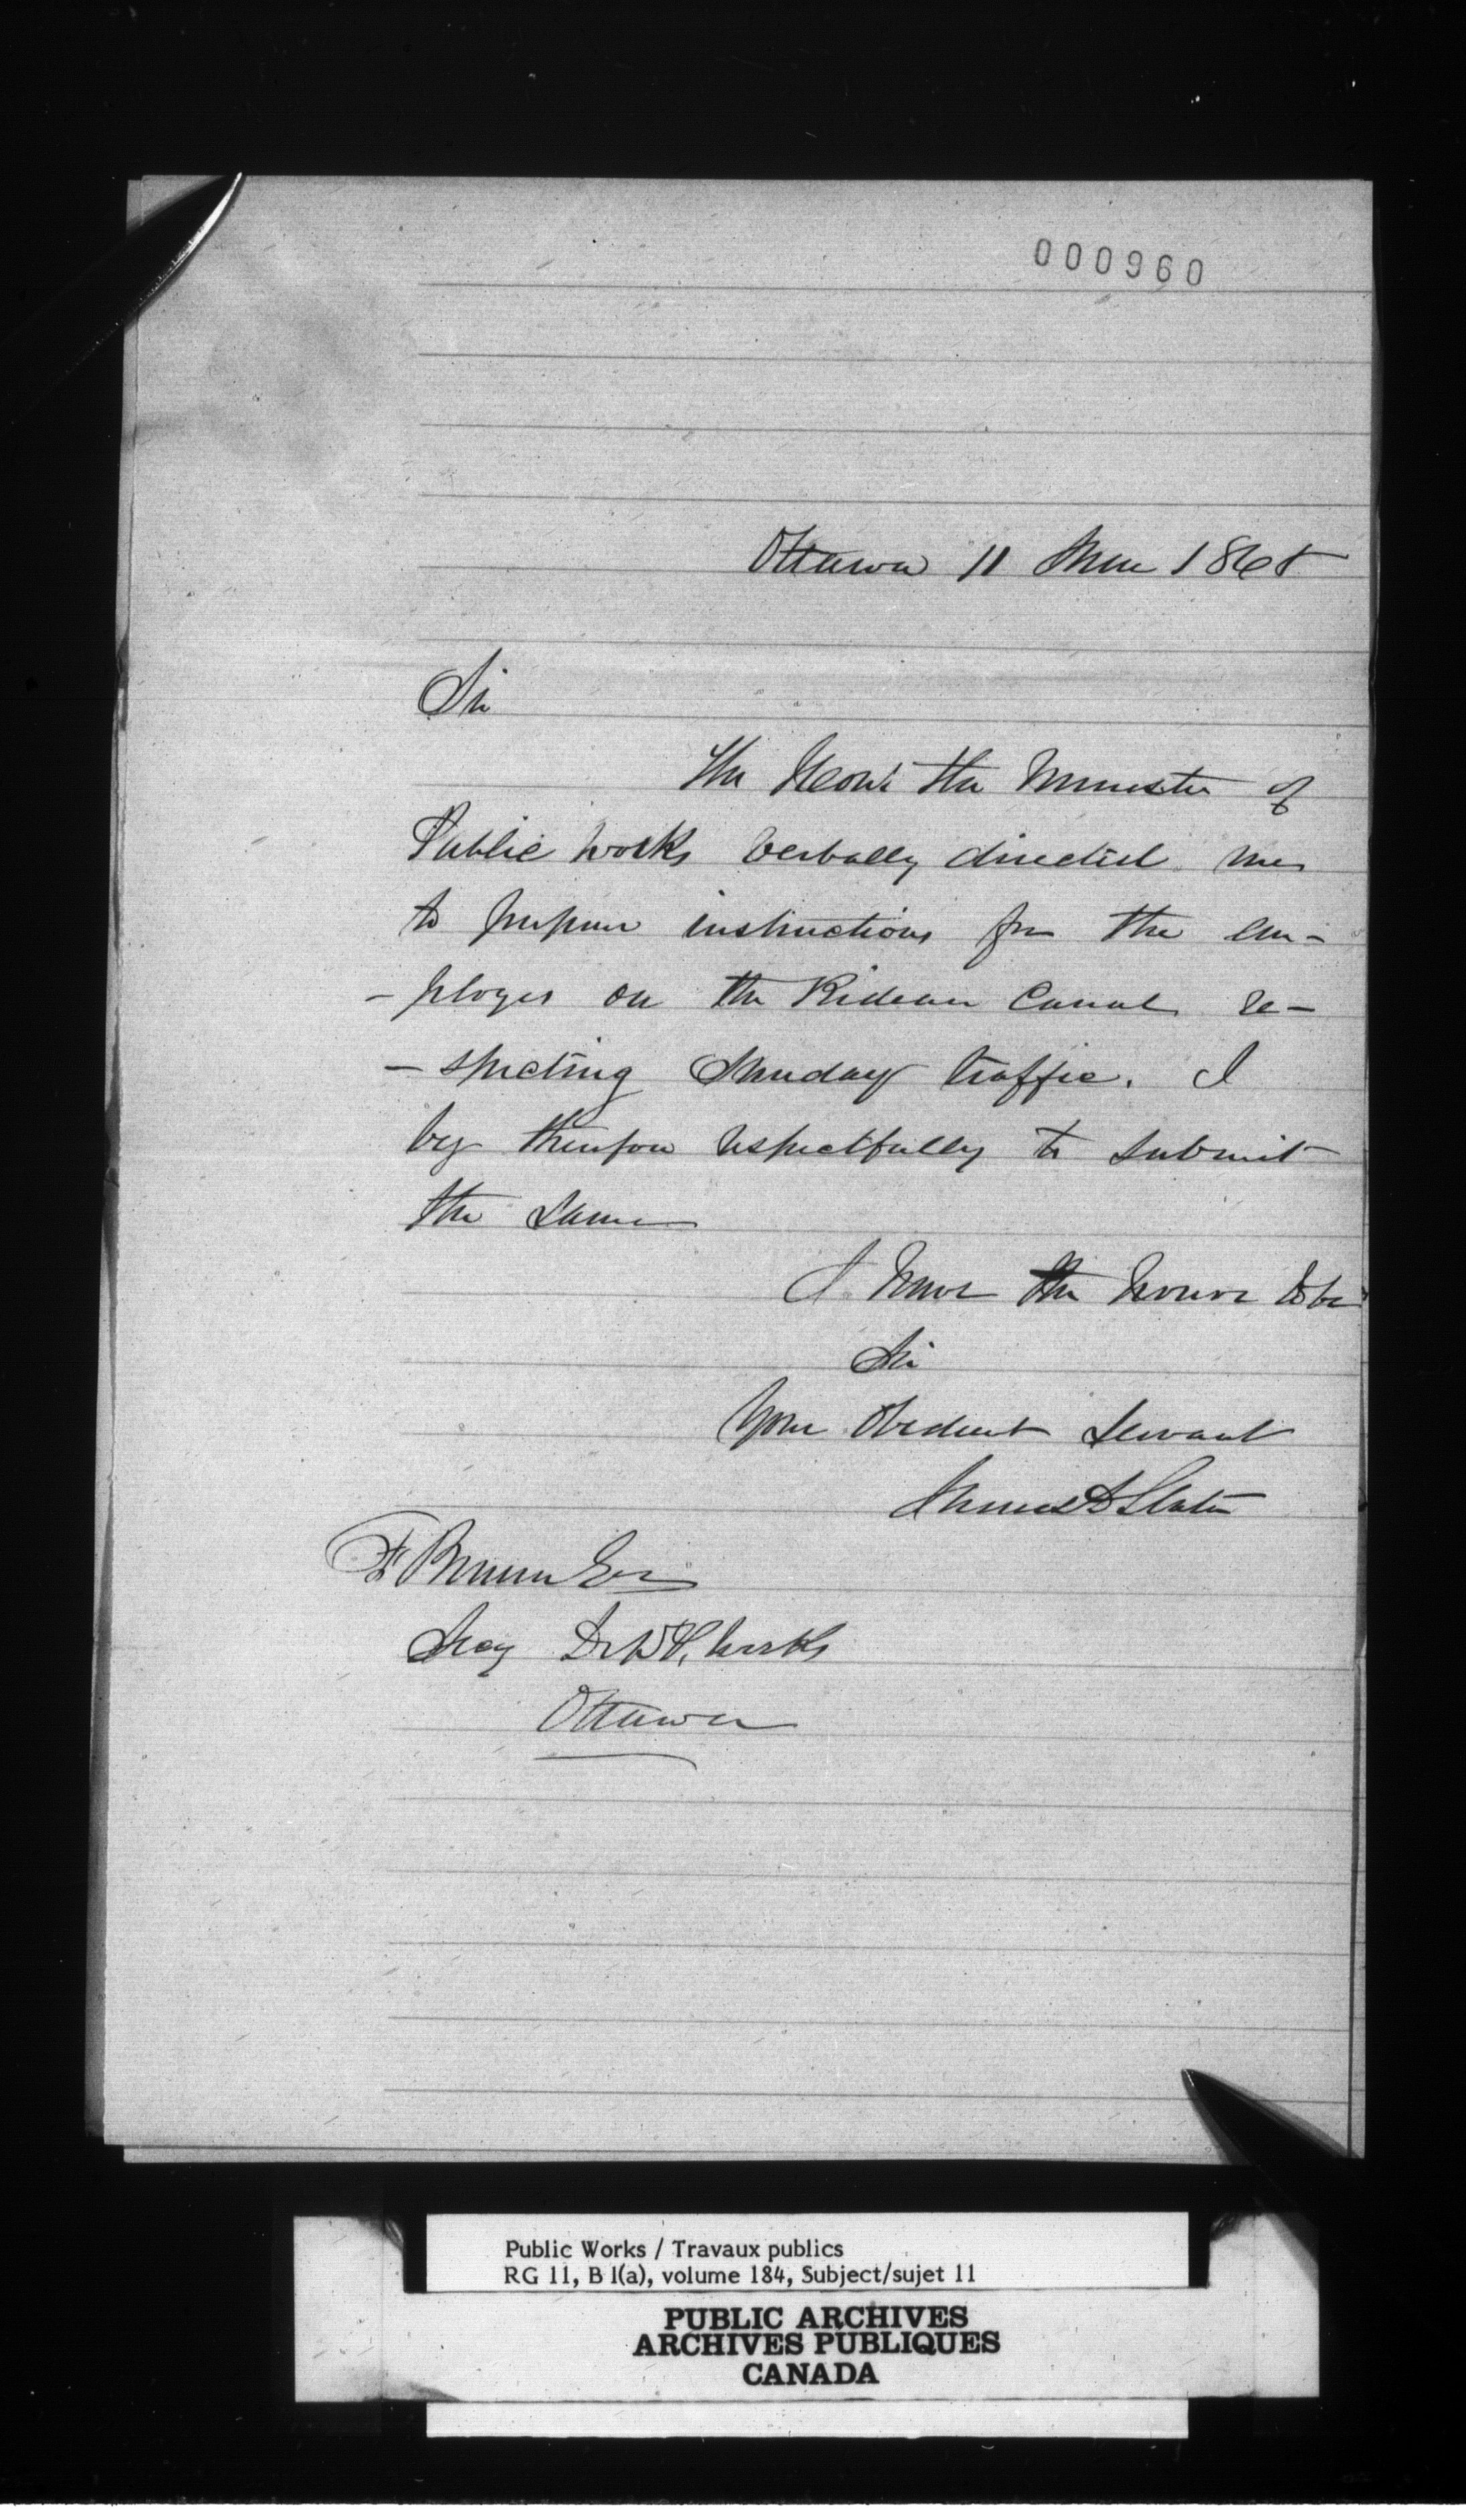 000960
Ottawa 11 June 1868
Sir
The Honb the Minister of
Public Works verbally directed me
to prepare instructions for the em-
-ployes on the Rideau Canal re-
-specting Sunday traffic. I
beg therefore respectfully to submit
the same
I have the honor to be
Sir
Your Obedient Servant
James D Slater
F Braun Esq
Secy Works
Ottawa
Public Works / Travaux publics
RG 11, B 1(a), volume 184, Subject/sujet 11
PUBLIC ARCHIVES
ARCHIVES PUBLIQUES
CANADA